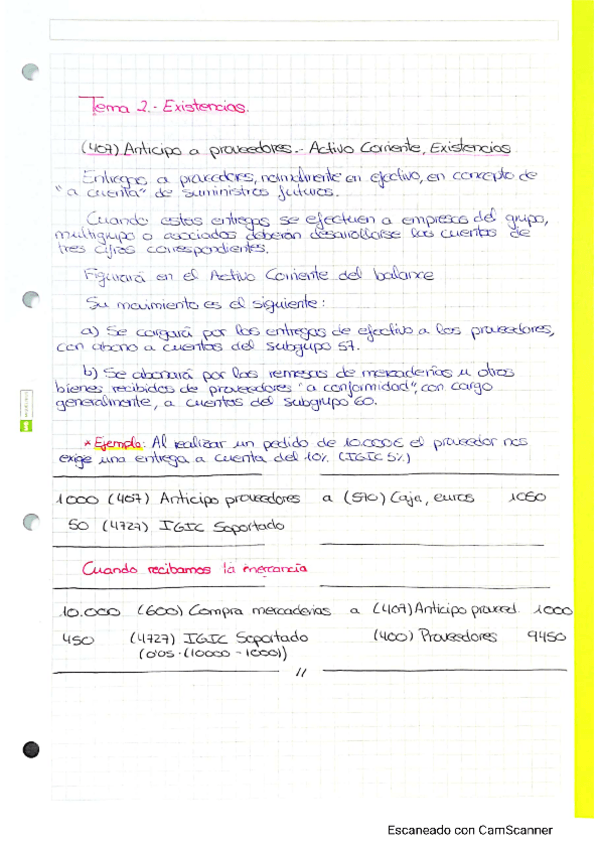 Tema 2.- Existencias.
(407) Anticipo a proveedores.- Activo Corriente, Existencias
Entregas a proveedores, normalmente en efectivo, en concepto de
"a cuenta" de suministros futuros.
Cuando estas entregas se efectuen a empresas del grupo,
multigrupo o asociadas deberán desarrollarse las cuentas de
tres cifras correspondientes.
Figurará en el Activo Corriente del balance
Su movimiento es el siguiente:
a) Se cargará por las entregas de efectivo a los proveedores,
con abono a cuentas del subgrupo 57.
b) Se abonará por las remesas de mercaderías u otros
bienes recibidos de proveedores "a conformidad", con cargo
generalmente, a cuentas del subgrupo 60.
* Ejemplo: Al realizar un pedido de 10.000€ el proveedor nos
exige una entrega a cuenta del 10% (IGIC 5%)
1000 (407) Anticipo proveedores a (570) Caja, euros 1050
50 (4727) IGIC Soportado
Cuando recibamos la mercancía
10.000 (600) Compra mercaderías a (407) Anticipo proveed. 1000
450 (4727) IGIC Soportado (400) Proveedores 9450
(0'05·(10000-1000))
//
Escaneado con CamScanner